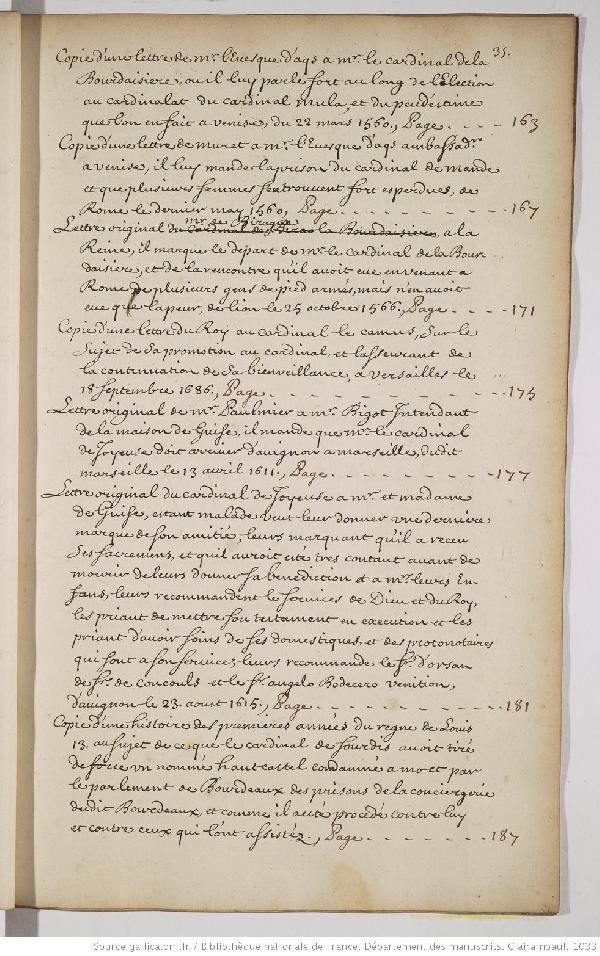 35.
Copie d'une lettre de mr. l'Evesque d'aqs a mr. le cardinal de la
Bourdaisiere, ou il luy parle fort au long de l'Election
au cardinalat du cardinal mula, et du peu d'estime
que l'on en fait a venise, du 22 mars 1560., Page . . . - - 163
Copie d'une lettre de muret a mr. l'Evesque d'aqs ambassadr.
a venise, il luy mande la prison du cardinal de mande
et que plusieurs femmes s'en trouvent fort esperdues, de
Rome le dernier may 1560, Page - - - - - - - - - - 167
mr. de Birague
Lettre original du cardinal de la Bourdaisiere, a la
Reine, il marque le depart de mr. le cardinal de la Bour-
daisiere, et de la rencontre qu'il avoit eue en venant a
Rome de plusieurs gens de pied armés, mais n'en avoit
eue que la peur, de lion le 25 octobre 1566., Page . - - - 171
Copie d'une lettre du Roy au cardinal le camus, sur le
sujet de sa promotion au cardinal, et l'asseurant de
la continuation de sa bienveillance, a versailles le
18 septembre 1686., Page - - - - - - - - - - - 175
Lettre original de mr. Paulmier a mr. Bigot Intendant
de la maison de Guise, il mande que mr. le cardinal
de Joyeuse doit arriver d'avignon a marseille, dudit
marseille le 13 avril 1611., Page - - - - - - - - 177
Lettre original du cardinal de Joyeuse a mr. et madame
de Guise, estant malade veut leur donner une derniere
marque de son amitié, leurs marquant qu'il a receu
ses sacremens, et qu'il auroit été tres contant avant de
mourir de leurs donner sa benediction et a mrs. leurs En-
fans, leurs recommandent le services de Dieu et du Roy,
les priant de mettre son testament en execution et les
priant d'avoir soins de ses domestiques, et des protonotaires
qui sont a son services, leurs recommande le sr. d'orsan
de sr. de Coucouls et le sr. angelo Bodecero venition,
d'avignon le 23. aoust 1615., Page - - - - - - - - 181
Copie d'une histoire des premieres années du regne de Louis
13. au sujet de ce que le cardinal de sourdis avoit tiré
de force un nommé hautcastel condamné a mort par
le parlement de Bourdeaux des prisons de la conciergerie
dudit Bourdeaux, et comme il a eté procedé contre luy
et contre ceux qui l'ont assistéz., Page - - - - - - - 187
Source gallica.bnf.fr / Bibliothèque nationale de France. Département des manuscrits. Clairambault. 1033